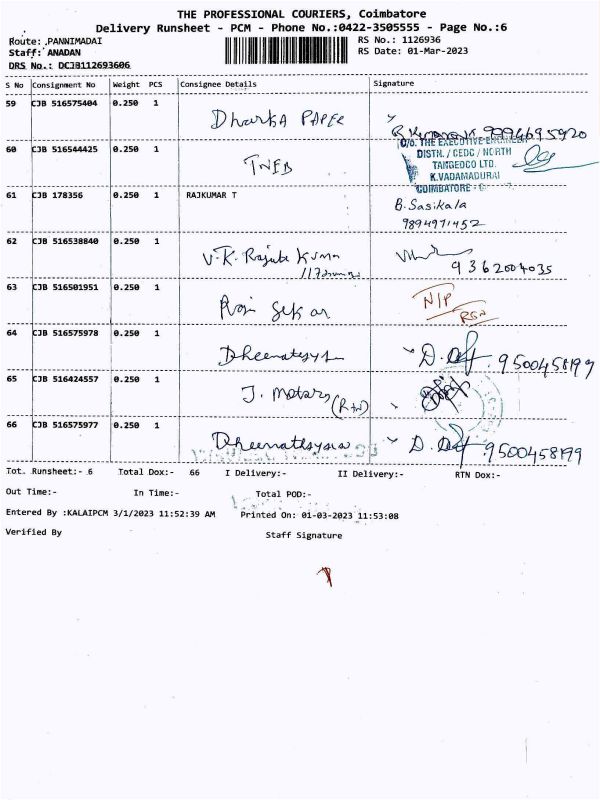 THE PROFESSIONAL COURIERS, Coimbatore
Delivery Runsheet - PCM - Phone No.:0422-3505555 - Page No.:6
Route: PANNIMADAI
RS No.: 1126936
Staff: ANADAN
RS Date: 01-Mar-2023
DRS No.: DCJB112693606
S No Consignment No Weight PCS Consignee Details Signature
59 CJB 516575404 0.250 1 Dharka PAPER 9994695920
60 CJB 516544425 0.250 1 TNEB
O/o. THE EXECUTIVE ENGINEER
DISTN. / CEDC / NORTH
TANGEDCO LTD.
K.VADAMADURAI
COIMBATORE -
61 CJB 178356 0.250 1 RAJKUMAR T B. Sasikala
9894971452
62 CJB 516538840 0.250 1 V.K. Kumar
9362004035
63 CJB 516501951 0.250 1 N/P
64 CJB 516575978 0.250 1 9500458199
65 CJB 516424557 0.250 1 J. Motors
66 CJB 516575977 0.250 1 9500458199
Tot. Runsheet:- 6 Total Dox:- 66 I Delivery:- II Delivery:- RTN Dox:-
Out Time:- In Time:- Total POD:-
Entered By :KALAIPCM 3/1/2023 11:52:39 AM Printed On: 01-03-2023 11:53:08
Verified By Staff Signature